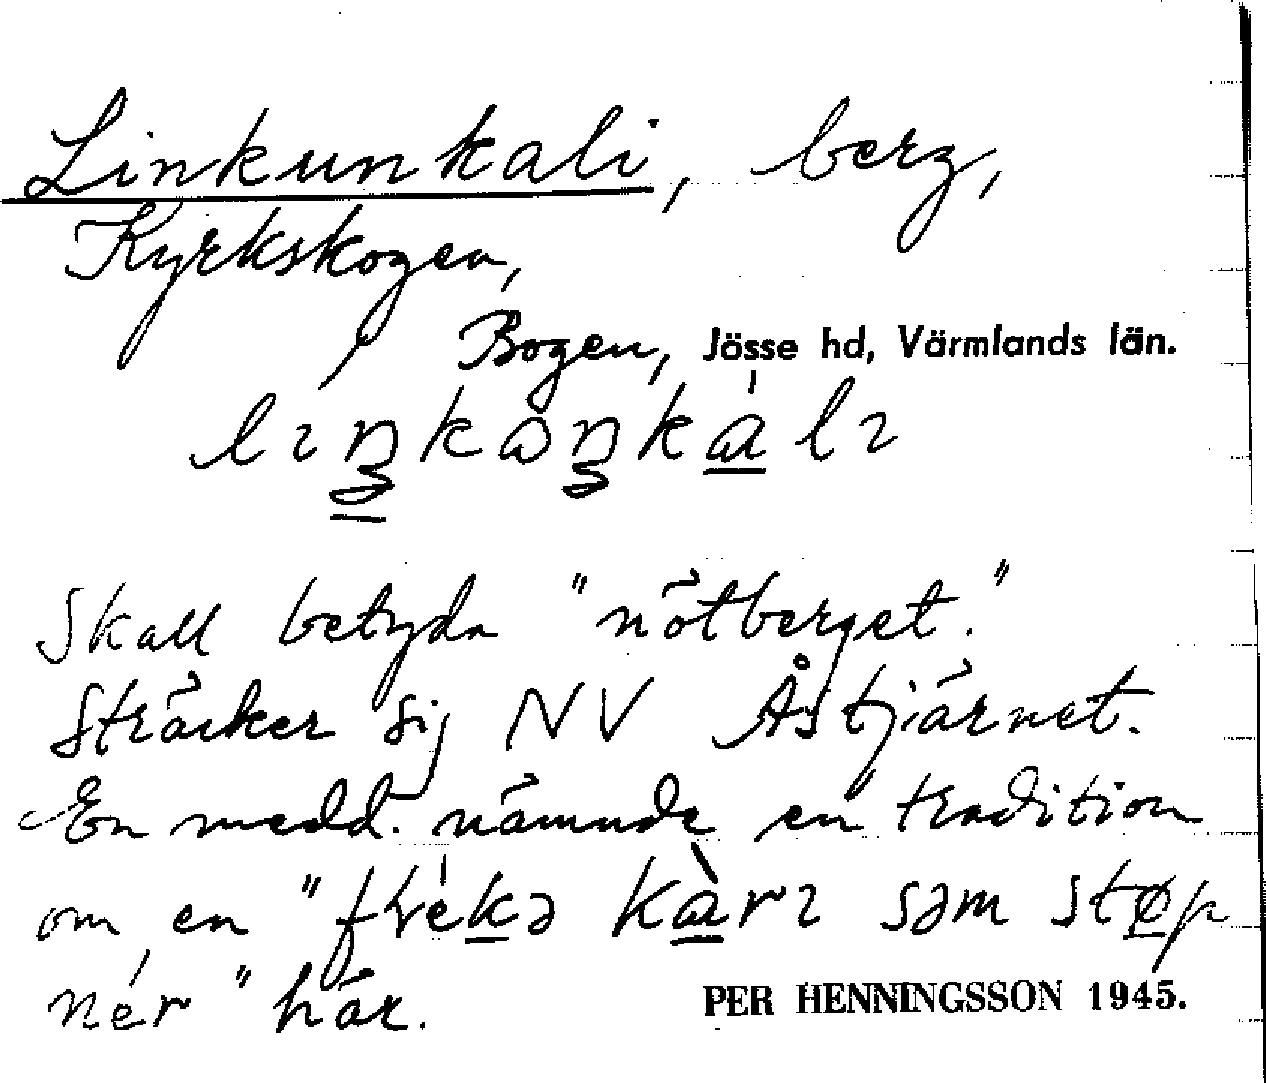 Linkunkali, berg,
Kyrkskogen,
Bogen, Jösse hd, Värmlands län.
Skall betyda "nötberget."
Sträcker sig NV Åstjärnet.
En medd. nämnde en tradition
om en "frekə karı səm støp
nér" här.
PER HENNINGSSON 1945.